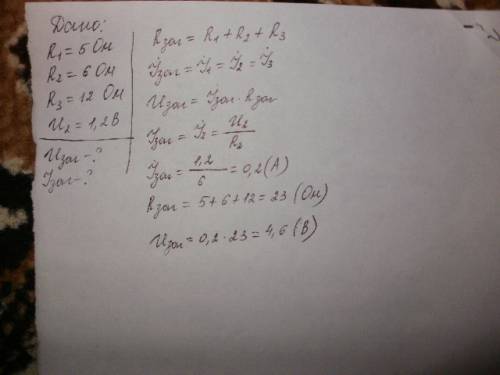 Дано:
R₁ = 5 Ом
R₂ = 6 Ом
R₃ = 12 Ом
U₂ = 1,2 В
Uзаг - ?
Iзаг - ?
Rзаг = R₁ + R₂ + R₃
Iзаг = I₁ = I₂ = I₃
Uзаг = Iзаг · Rзаг
Iзаг = I₂ = U₂/R₂
Iзаг = 1,2/6 = 0,2 (А)
Rзаг = 5 + 6 + 12 = 23 (Ом)
Uзаг = 0,2 · 23 = 4,6 (В)